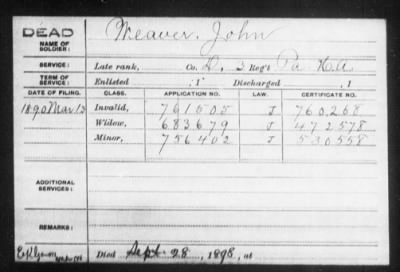 DEAD
NAME OF SOLDIER:
Weaver, John
SERVICE:
Late rank, Co. D, 2 Reg't Pa H.A
TERM OF SERVICE:
Enlisted , 1 Discharged , 1
DATE OF FILING. CLASS. APPLICATION NO. LAW. CERTIFICATE NO.
1890 Mar 15 Invalid, 761505 J 760,268
Widow, 683679 J 472578
Minor, 756402 J 530558
ADDITIONAL SERVICES:
REMARKS:
Died Sept 28, 1898, at